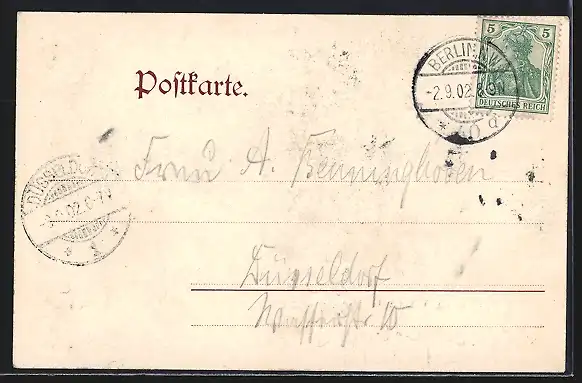 Postkarte.
BERLIN N.W.
-2.9.02.8-9V
* 40 d
5 5
DEUTSCHES REICH
DÜSSELDORF
.9.02.6-7V
* 1 *
Frau A. Benninghoven
Düsseldorf
Wasserstr 10